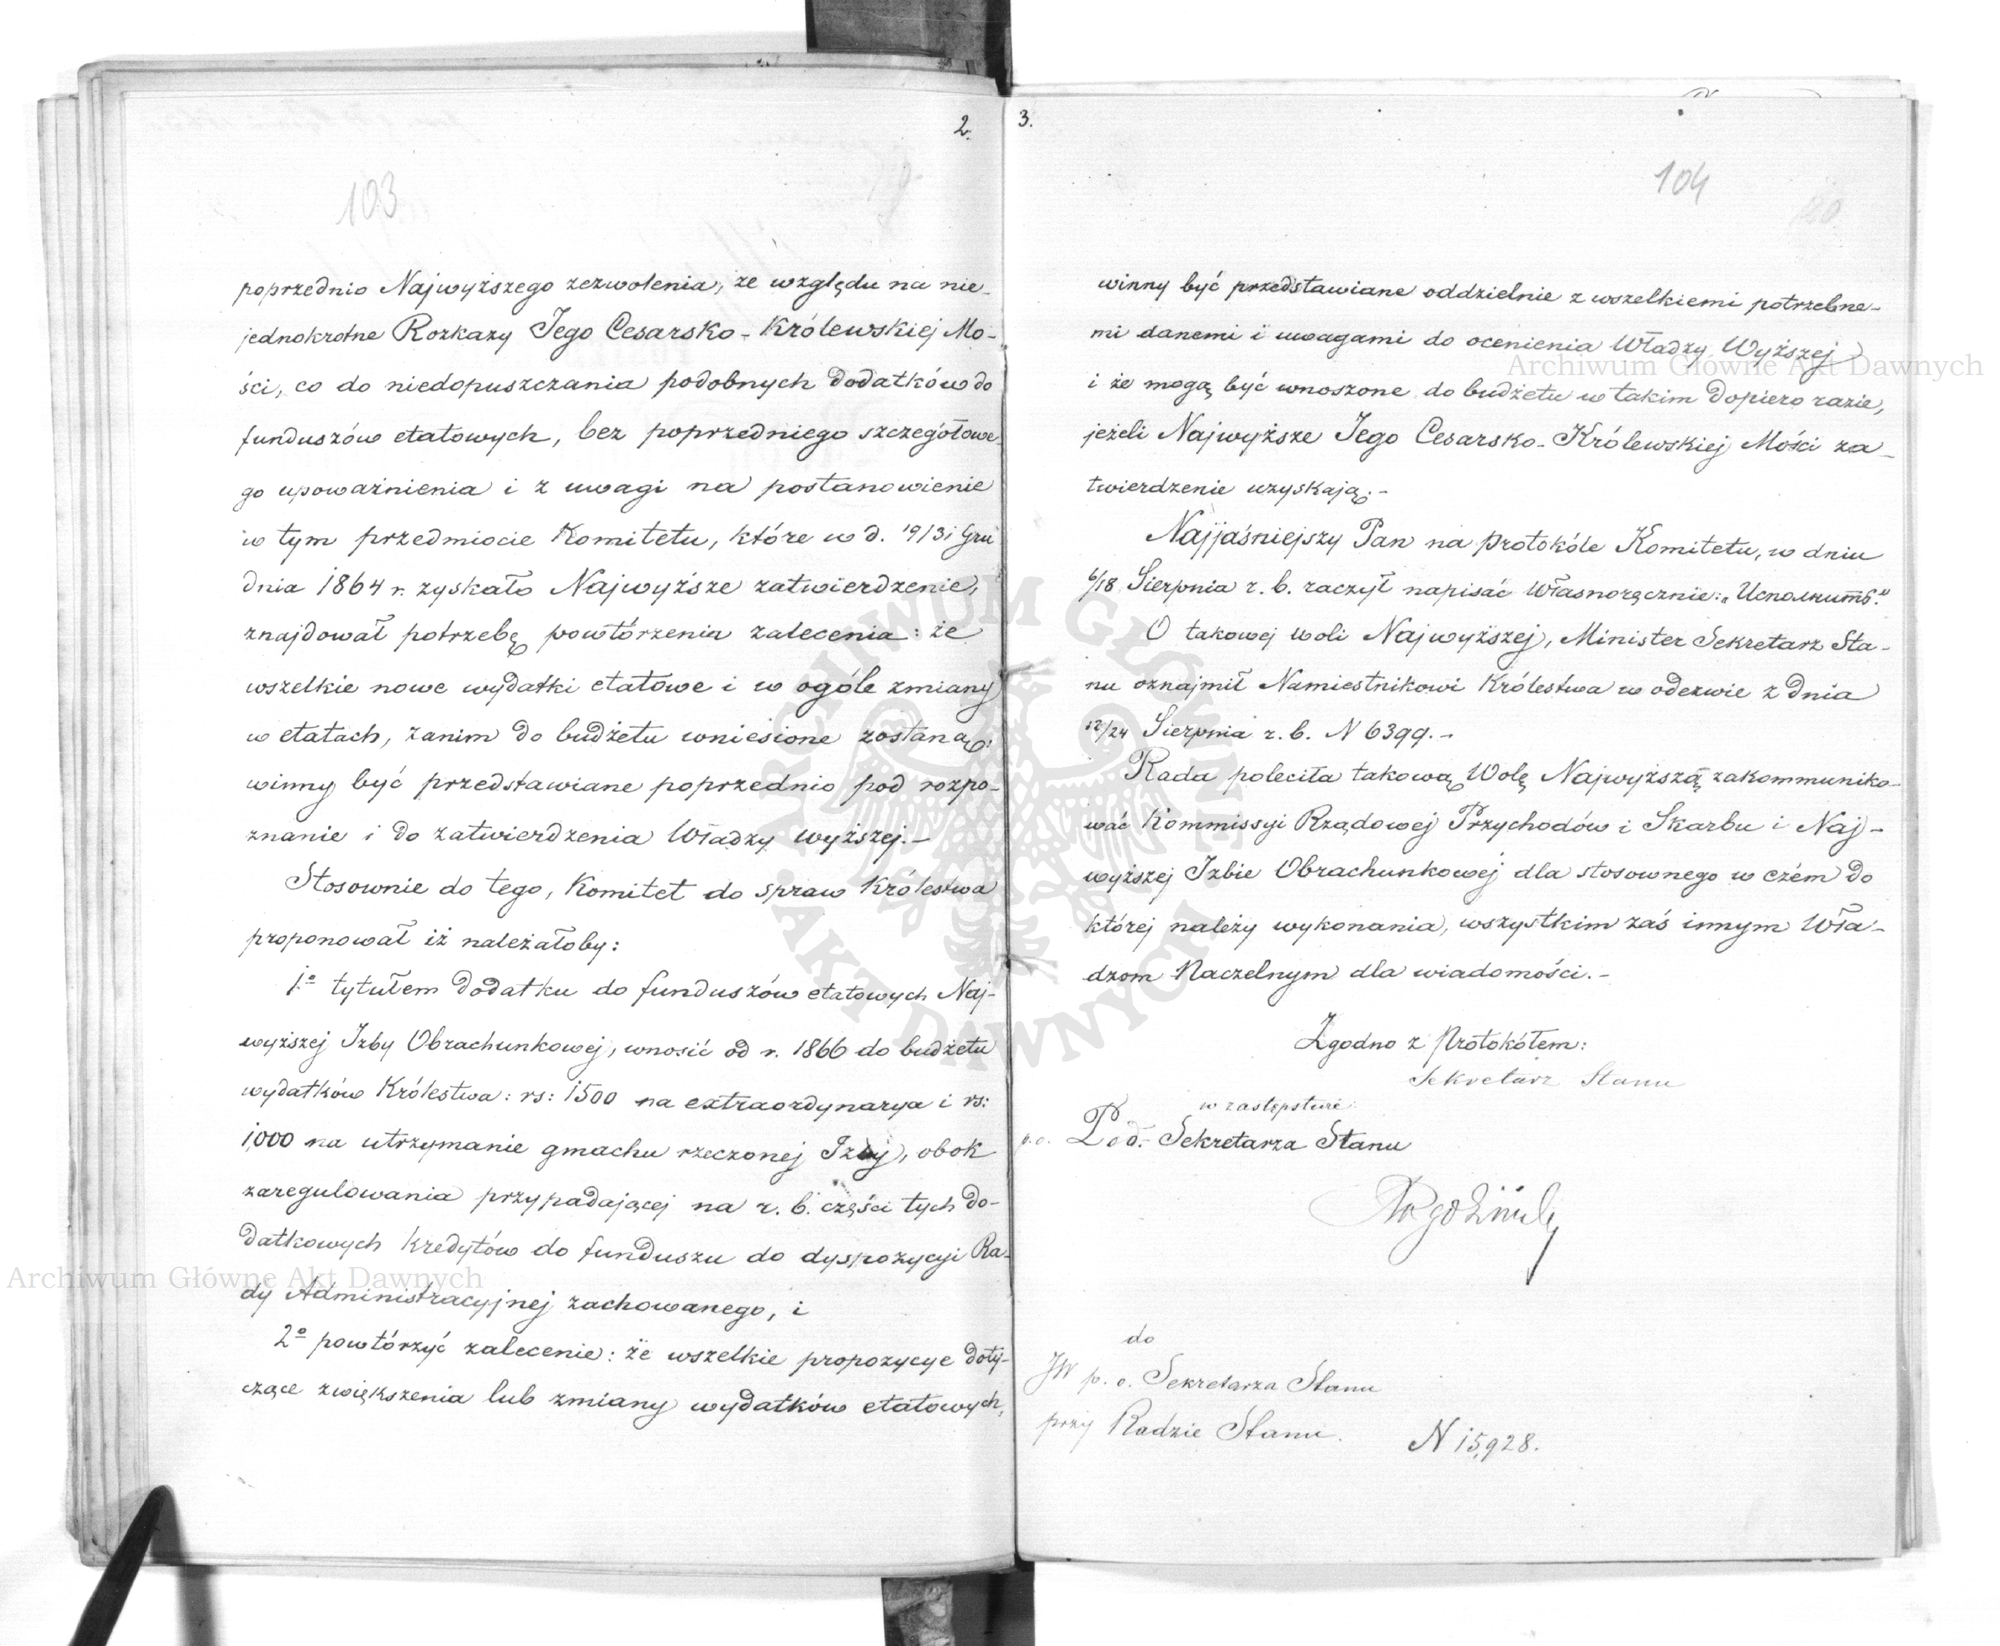 2.
103
poprzednio Najwyższego zezwolenia, ze względu na nie-
jednokrotne Rozkazy Jego Cesarsko-Królewskiej Mo-
ści, co do niedopuszczania podobnych dodatków do
funduszów etatowych, bez poprzedniego szczegółowe-
go upoważnienia i z uwagi na postanowienie
w tym przedmiocie Komitetu, które w d. 19/31 Gru
dnia 1864 r. zyskało Najwyższe zatwierdzenie,
znajdował potrzebę powtórzenia zalecenia: że
wszelkie nowe wydatki etatowe i w ogóle zmiany
w etatach, zanim do budżetu wniesione zostaną,
winny być przedstawiane poprzednio pod rozpo-
znanie i do zatwierdzenia Władzy wyższej.-
Stosownie do tego, Komitet do spraw Królestwa
proponował iż należałoby:
1º tytułem dodatku do funduszów etatowych Naj-
wyższej Izby Obrachunkowej, wnosić od r. 1866 do budżetu
wydatków Królestwa: rs: 1500 na extraordynarya i rs:
1,000 na utrzymanie gmachu rzeczonej Izby, obok
zaregulowania przypadającej na r. b. części tych do-
datkowych kredytów do funduszu do dyspozycyi Ra-
dy Administracyjnej zachowanego, i
2º powtórzyć zalecenie: że wszelkie propozycye doty-
czące zwiększenia lub zmiany wydatków etatowych,
3.
104
winny być przedstawiane oddzielnie z wszelkiemi potrzebne-
mi danemi i uwagami do ocenienia Władzy Wyższej
i że mogą być wnoszone do budżetu w takim dopiero razie,
jeżeli Najwyższe Jego Cesarsko-Królewskiej Mości za-
twierdzenie uzyskają.-
Najjaśniejszy Pan na protokóle Komitetu, w dniu
6/18 Sierpnia r. b. raczył napisać Własnoręcznie: „Исполнить."
O takowej woli Najwyższej, Minister Sekretarz Sta-
nu oznajmił Namiestnikowi Królestwa w odezwie z dnia
12/24 Sierpnia r. b. N 6399.-
Rada poleciła takową Wolę Najwyższą zakommuniko-
wać Kommissyi Rządowej Przychodów i Skarbu i Naj-
wyższej Izbie Obrachunkowej dla stosownego w czém do
której należy wykonania, wszystkim zaś innym Wła-
dzom Naczelnym dla wiadomości.-
Zgodno z Protokółem:
Sekretarz Stanu
w zastępstwie
p.o. Pod.- Sekretarza Stanu
do
JW p. o. Sekretarza Stanu
przy Radzie Stanu.
N 15,928.
Archiwum Główne Akt Dawnych
Archiwum Główne Akt Dawnych
ARCHIWUM GŁÓWNE • AKT DAWNYCH •